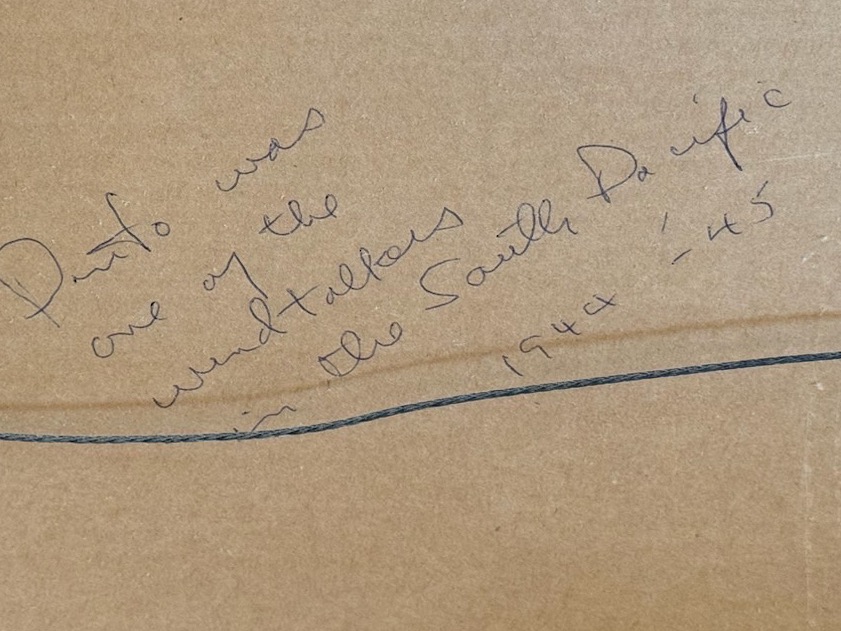 Pinto was
one of the
windtalkers
in the South Pacific
1944 '-45